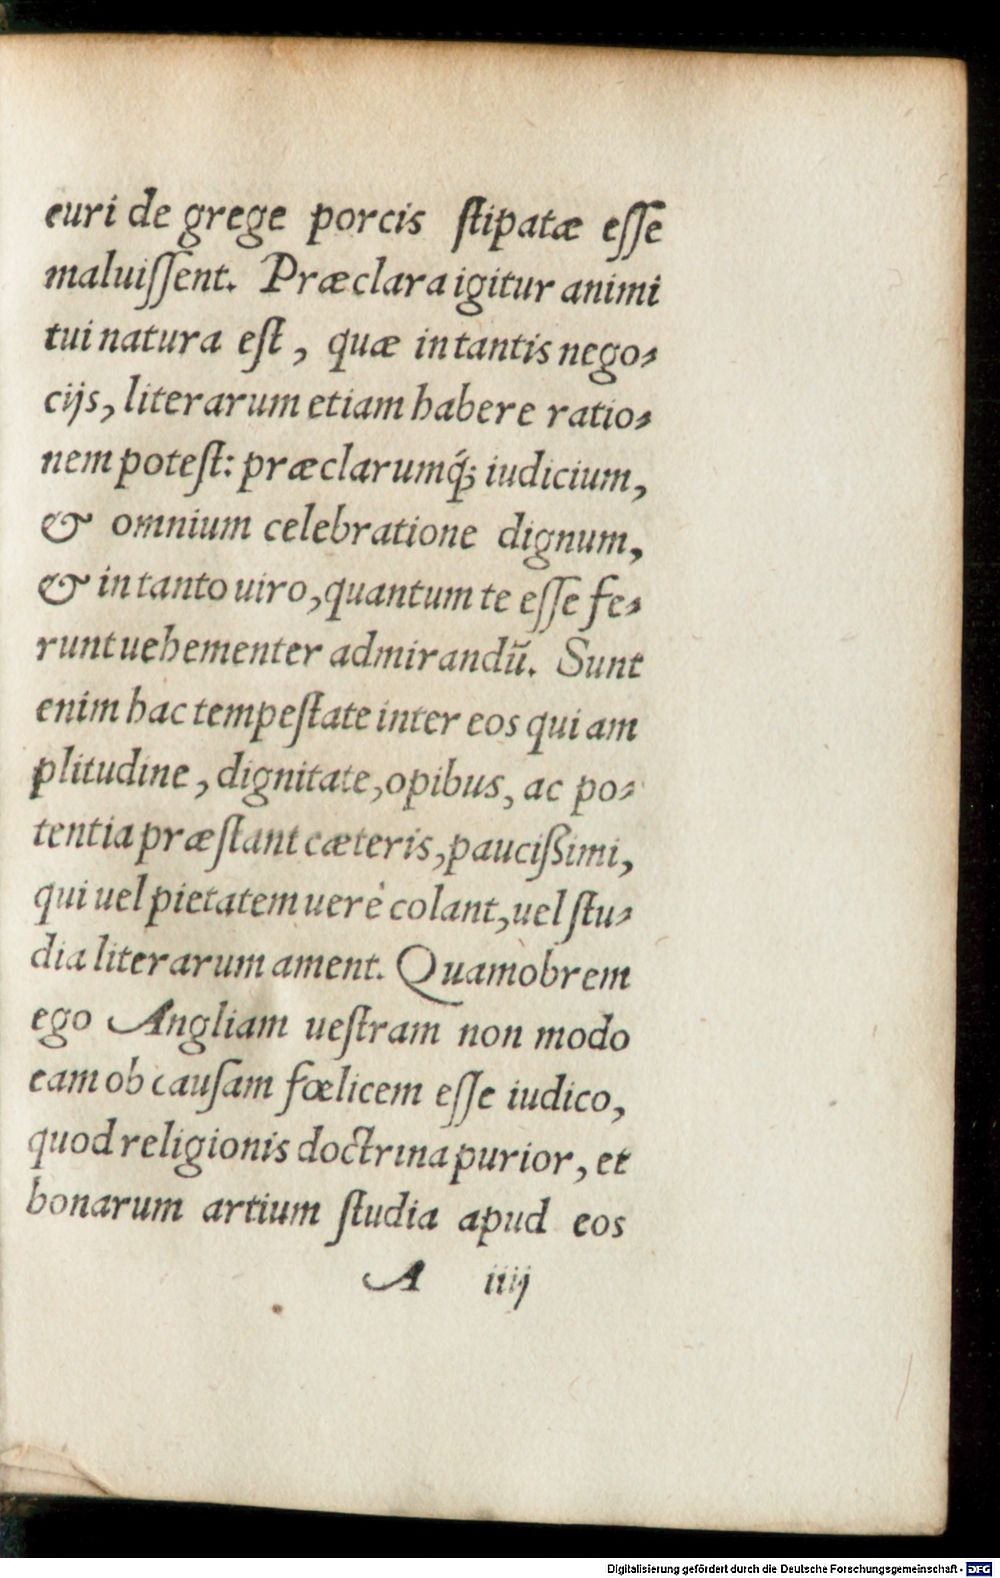 curi de grege porcis stipatæ esse
maluissent. Præclara igitur animi
tui natura est, quæ in tantis nego-
cijs, literarum etiam habere ratio-
nem potest: præclarumq́; iudicium,
& omnium celebratione dignum,
& in tanto uiro, quantum te esse fe-
runt uehementer admirandũ. Sunt
enim hac tempestate inter eos qui am
plitudine, dignitate, opibus, ac po-
tentia præstant cæteris, paucißimi,
qui uel pietatem uerè colant, uel stu-
dia literarum ament. Quamobrem
ego Angliam uestram non modo
eam ob causam fœlicem esse iudico,
quod religionis doctrina purior, et
bonarum artium studia apud eos
A iiij
Digitalisierung gefördert durch die Deutsche Forschungsgemeinschaft - DFG